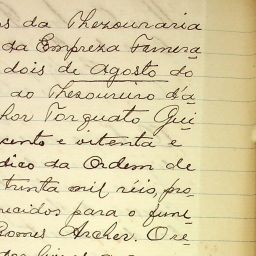 os da Thezouraria
da Empreza Funera
dois de Agosto do
ao Thesoureiro d'a
hor Torquato Gui
cento e oitenta e
dico da Ordem de
trinta mil réis, pro
recidos para o fune
Gomes Archer. O re